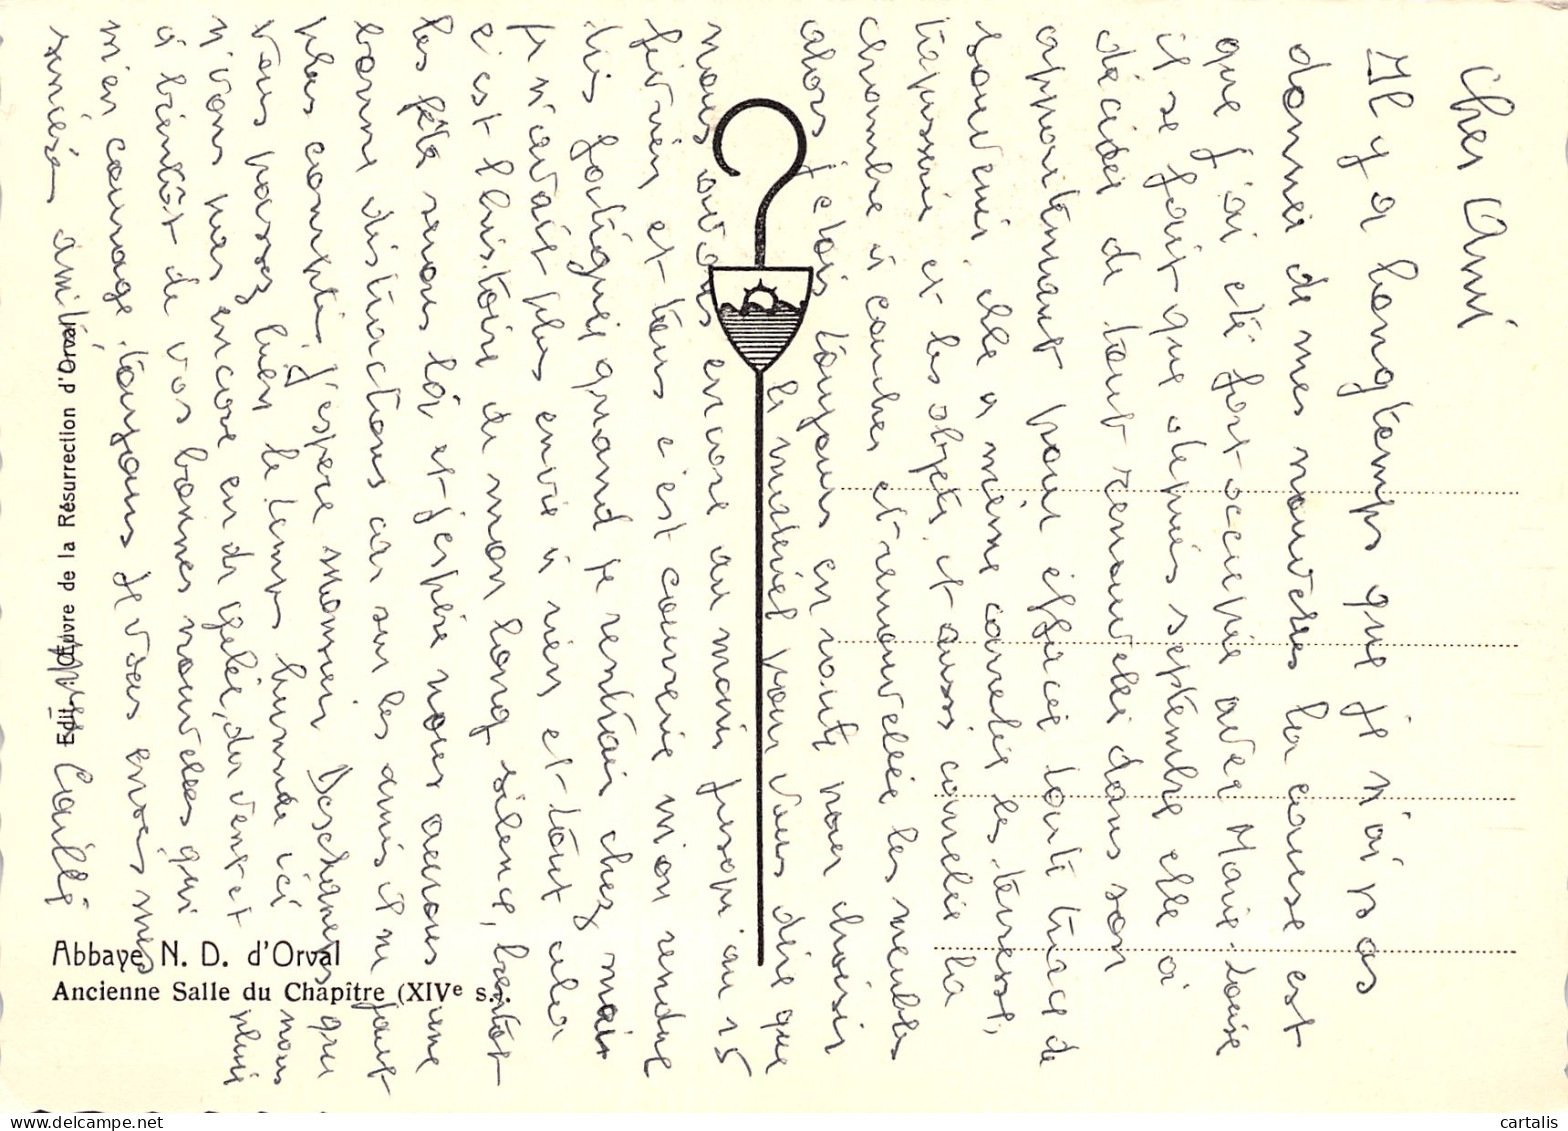 Cher Ami
Il y a longtemps que je n'ai pas
donner de mes nouvelles la cause est
que j'ai été fort occupée avec Marie-Louise
il se fait que depuis septembre elle a
décidé de tout renouveler dans son
appartement pour effacer toute trace de
souvenir, elle a même carrelé les terresse,
tapisserie et les objets, et aussi carrelée la
chambre à coucher et renouvellée les meubles
alors j'étais toujours en route pour choisir
le matériel pour vous dire que
nous avons encore au moins jusqu'au 15
février et tous c'est couvrie mon rendue
très fatiguée quand je rentrais chez moi
je n'avait plus envie à rien et tout cela
c'est l'histoire de mon long silence, bientôt
les fête serons là et j'espère nous aurons une
bonne distractions car sur les amis il ne faut
plus compter, j'espère monsieur Deschanes que
vous passez bien le temps humide ici nous
n'avons pas encore eu de gelée, du vent et pluie
à bientôt de vos bonnes nouvelles qui
m'en courage toujours je vous envoie mes
sincères amitié
Cailly
Edit. Œuvre de la Résurrection d'Orval
Abbaye N. D. d'Orval
Ancienne Salle du Chapître (XIVe s.).
cartalis